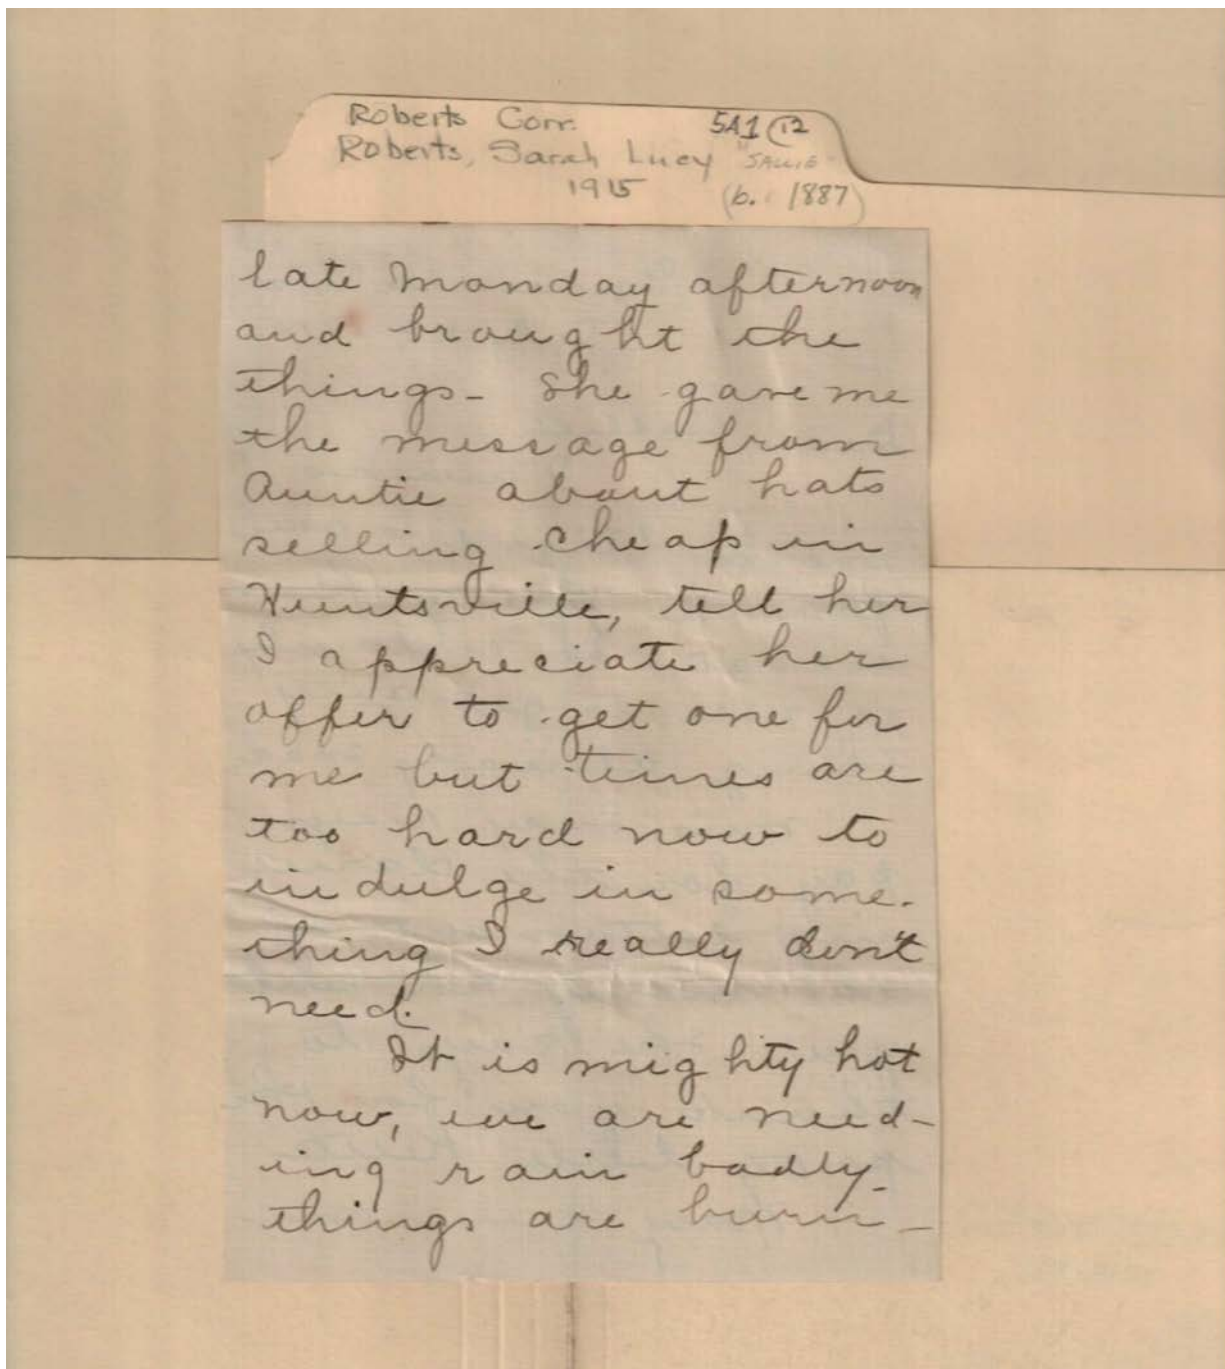 Roberts Corr. 5A1 (12
Roberts, Sarah Lucy "SALLIE"
1915 (b. 1887)
late Monday afternoon
and brought the
things - She gave me
the message from
Auntie about hats
selling cheap in
Huntsville, tell her
I appreciate her
offer to get one for
me but times are
too hard now to
indulge in some-
thing I really don't
need.
It is mighty hot
now, we are need-
ing rain badly -
things are burn -